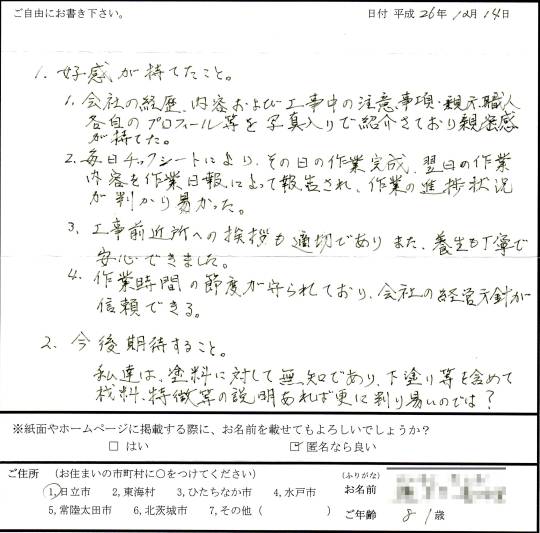 ご自由にお書き下さい。 日付 平成 26年 12月 14日
1. 好感が持てたこと。
1. 会社の経歴、内容および工事中の注意事項・親方、職人
各自のプロフィール等を写真入りで紹介さており親密感
が持てた。
2. 毎日チェックシートにより、その日の作業完成、翌日の作業
内容を作業日報によって報告され、作業の進捗状況
が判かり易かった。
3. 工事前近所への挨拶も適切であり また、養生も丁寧で
安心できました。
4. 作業時間の節度が守られており、会社の経営方針が
信頼できる。
2. 今後期待すること。
私達は、塗料に対して無知であり、下塗り等を含めて
材料、特徴等の説明あれば更に判り易いのでは？
※紙面やホームページに掲載する際に、お名前を載せてもよろしいでしょうか？
□ はい ☑ 匿名なら良い
ご住所 (お住まいの市町村に○をつけてください) (ふりがな)
1,日立市 2,東海村 3,ひたちなか市 4,水戸市 お名前
5,常陸太田市 6,北茨城市 7,その他 ( ) ご年齢 81歳